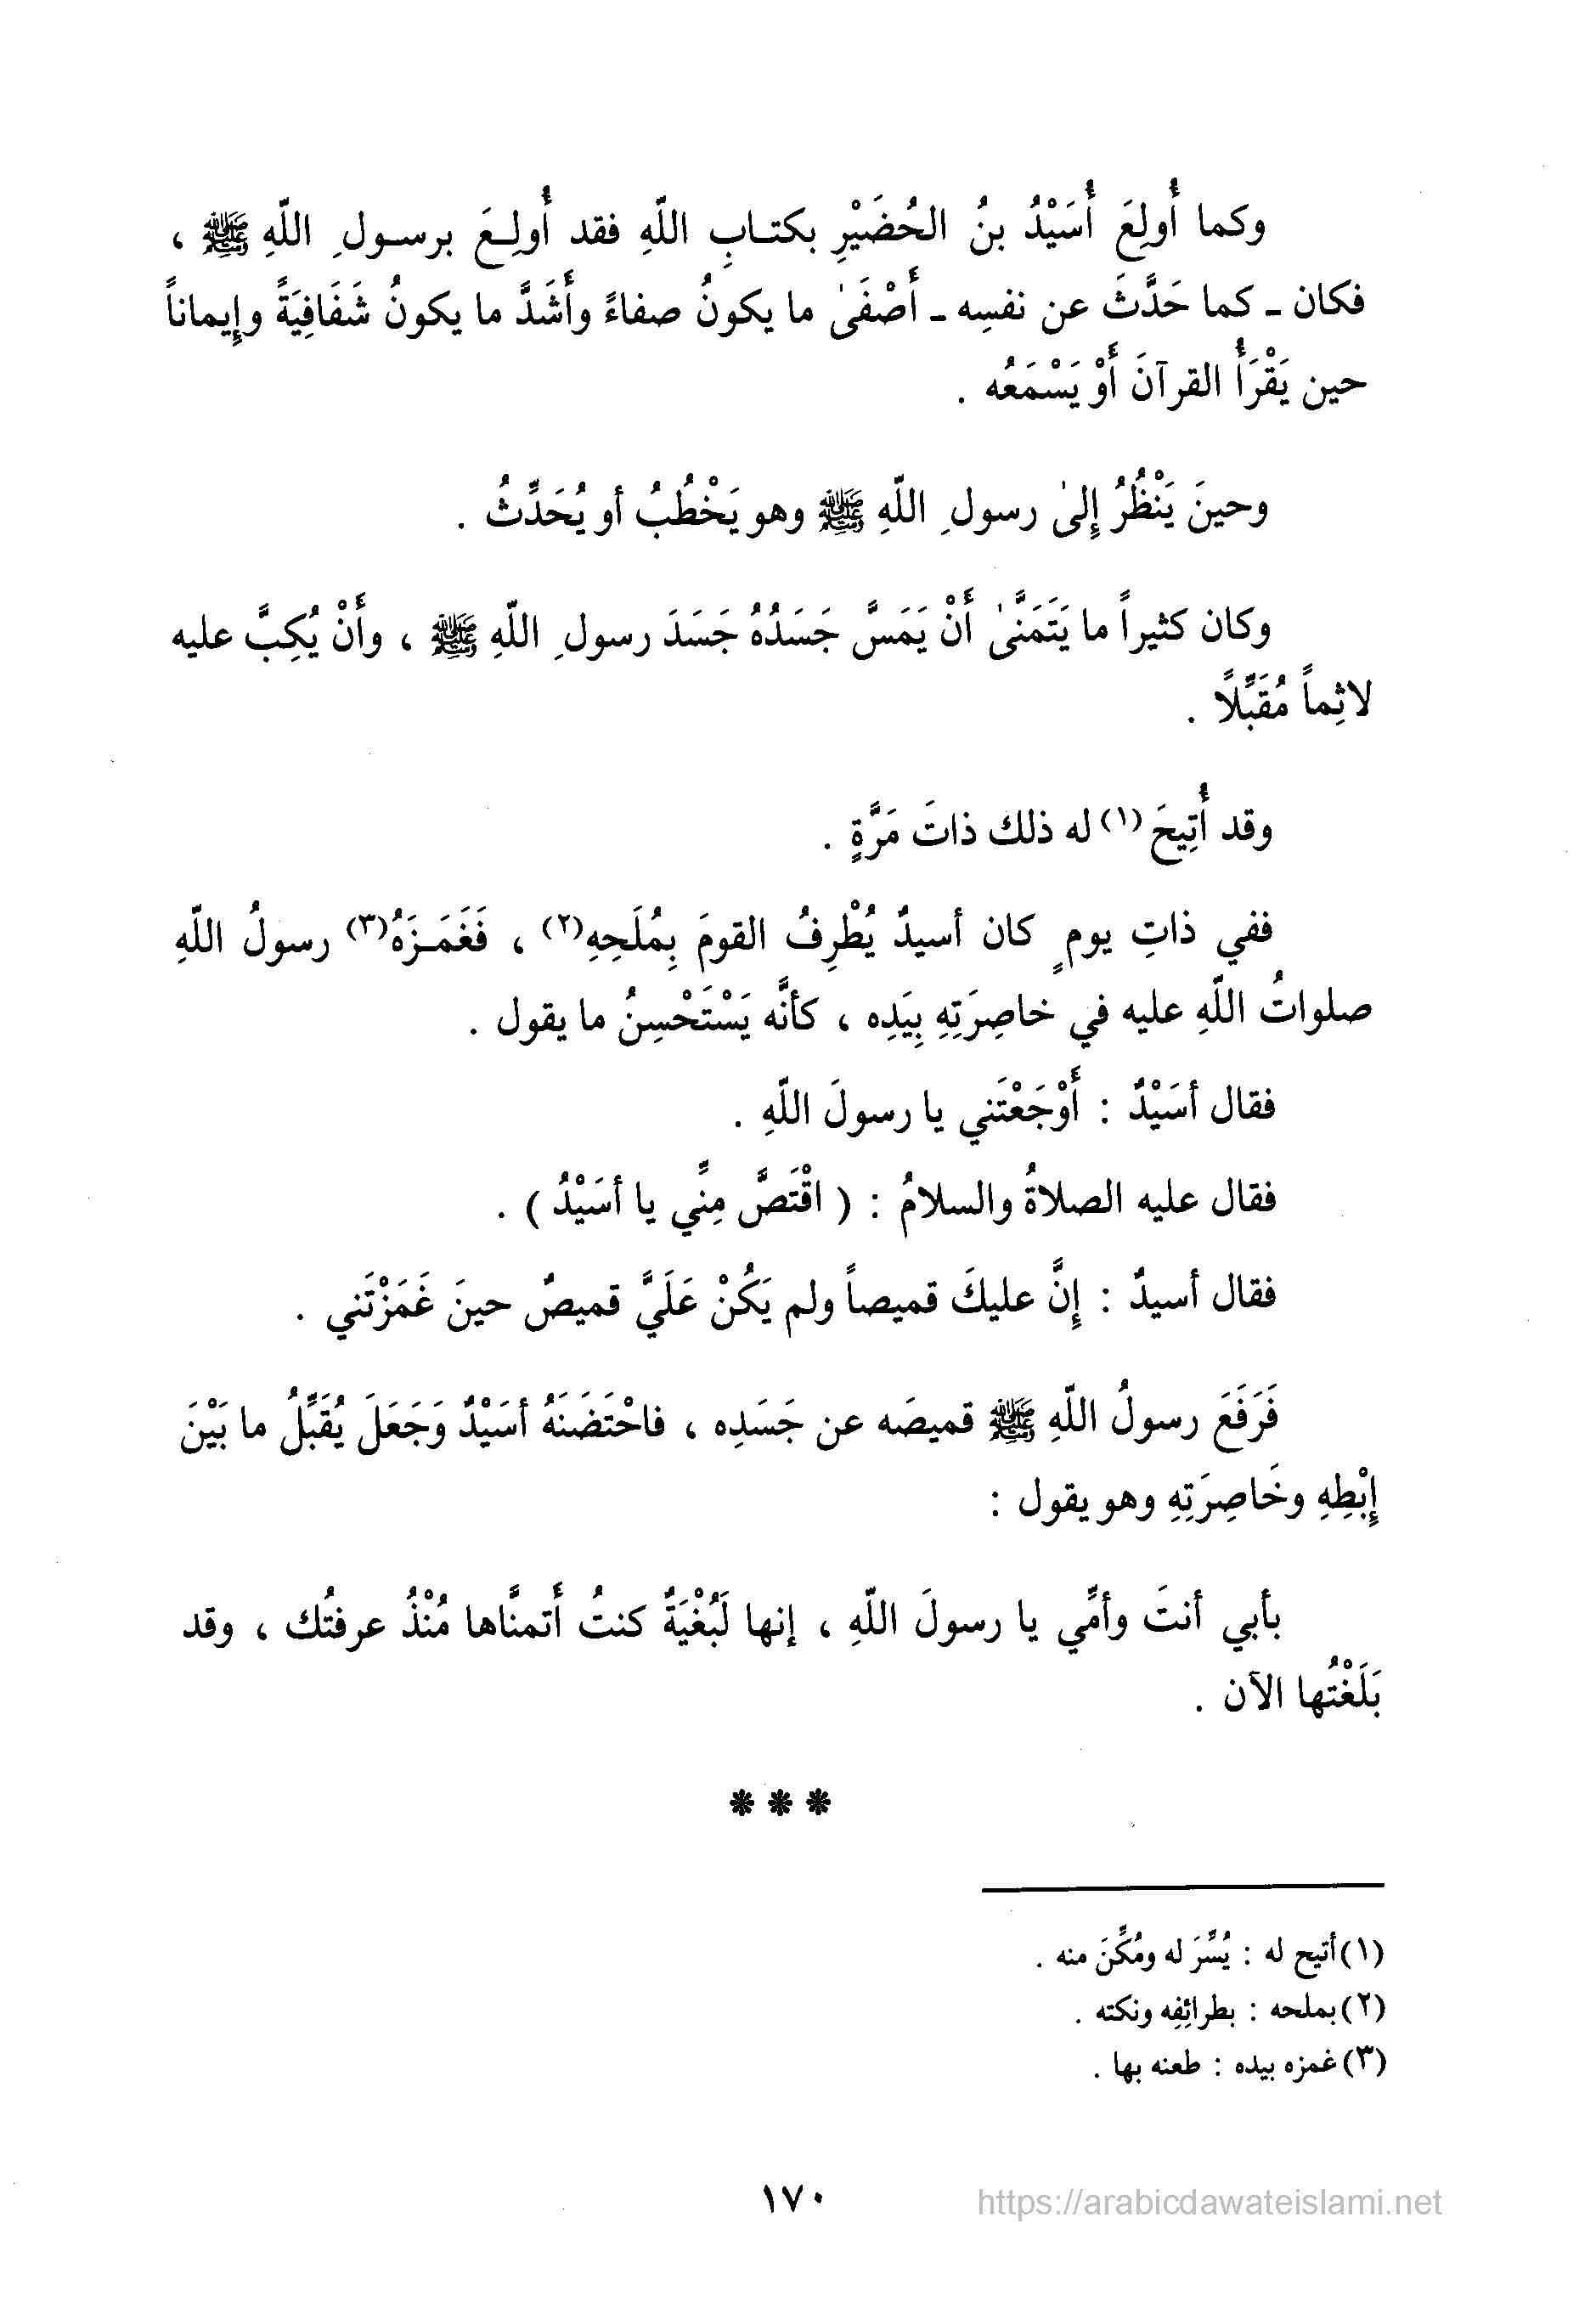 وكما أُولِعَ أُسَيْدُ بنُ الحُضَيْرِ بكتـابِ اللّهِ فقد أُولِـعَ برسـولِ اللّهِ ﷺ ،
فكان ـ كما حَدَّثَ عن نفسِه ـ أَصْفَىٰ ما يكونُ صفاءً وأَشَدَّ ما يكونُ شَفَافِيَةً وإِيماناً
حين يَقْرَأُ القرآنَ أَوْ يَسْمَعُه .
وحينَ يَنْظُرُ إِلىٰ رسولِ اللّهِ ﷺ وهو يَخْطُبُ أو يُحَدِّثُ .
وكان كثيراً ما يَتَمَنَّىٰ أَنْ يَمَسَّ جَسَدُهُ جَسَدَ رسولِ اللّهِ ﷺ ، وأَنْ يُكِبَّ عليه
لاثِماً مُقَبِّلًا .
وقد أُتِيحَ (١) له ذلك ذاتَ مَرَّةٍ .
ففي ذاتِ يومٍ كان أسيدٌ يُطْرِفُ القومَ بِمُلَحِهِ(٢) ، فَغَمَـزَهُ(٣) رسولُ اللّهِ
صلواتُ اللّهِ عليه في خاصِرَتِهِ بِيَدِه ، كأنَّه يَسْتَحْسِنُ ما يقول .
فقال أسَيْدٌ : أَوْجَعْتَني يا رسولَ اللّهِ .
فقال عليه الصلاةُ والسلامُ : ( اقْتَصَّ مِنِّي يا أسَيْدُ ) .
فقال أسيدٌ : إِنَّ عليكَ قميصاً ولم يَكُنْ عَلَيَّ قميصٌ حينَ غَمَزْتَني .
فَرَفَعَ رسولُ اللّهِ ﷺ قميصَه عن جَسَدِه ، فاحْتَضَنَهُ أسَيْدٌ وَجَعَلَ يُقَبِّلُ ما بَيْنَ
إِبْطِهِ وخَاصِرَتِهِ وهو يقول :
بأبي أنتَ وأمِّي يا رسولَ اللّهِ ، إنها لَبُغْيَةٌ كنتُ أَتمنَّاها مُنْذُ عرفتُك ، وقد
بَلَغْتُها الآن .
***
(١) أتيح له : يُسِّرَ له ومُكِّنَ منه .
(٢) بملحه : بطرائِفِه ونكته .
(٣) غمزه بيده : طعنه بها .
١٧٠
https://arabicdawateislami.net